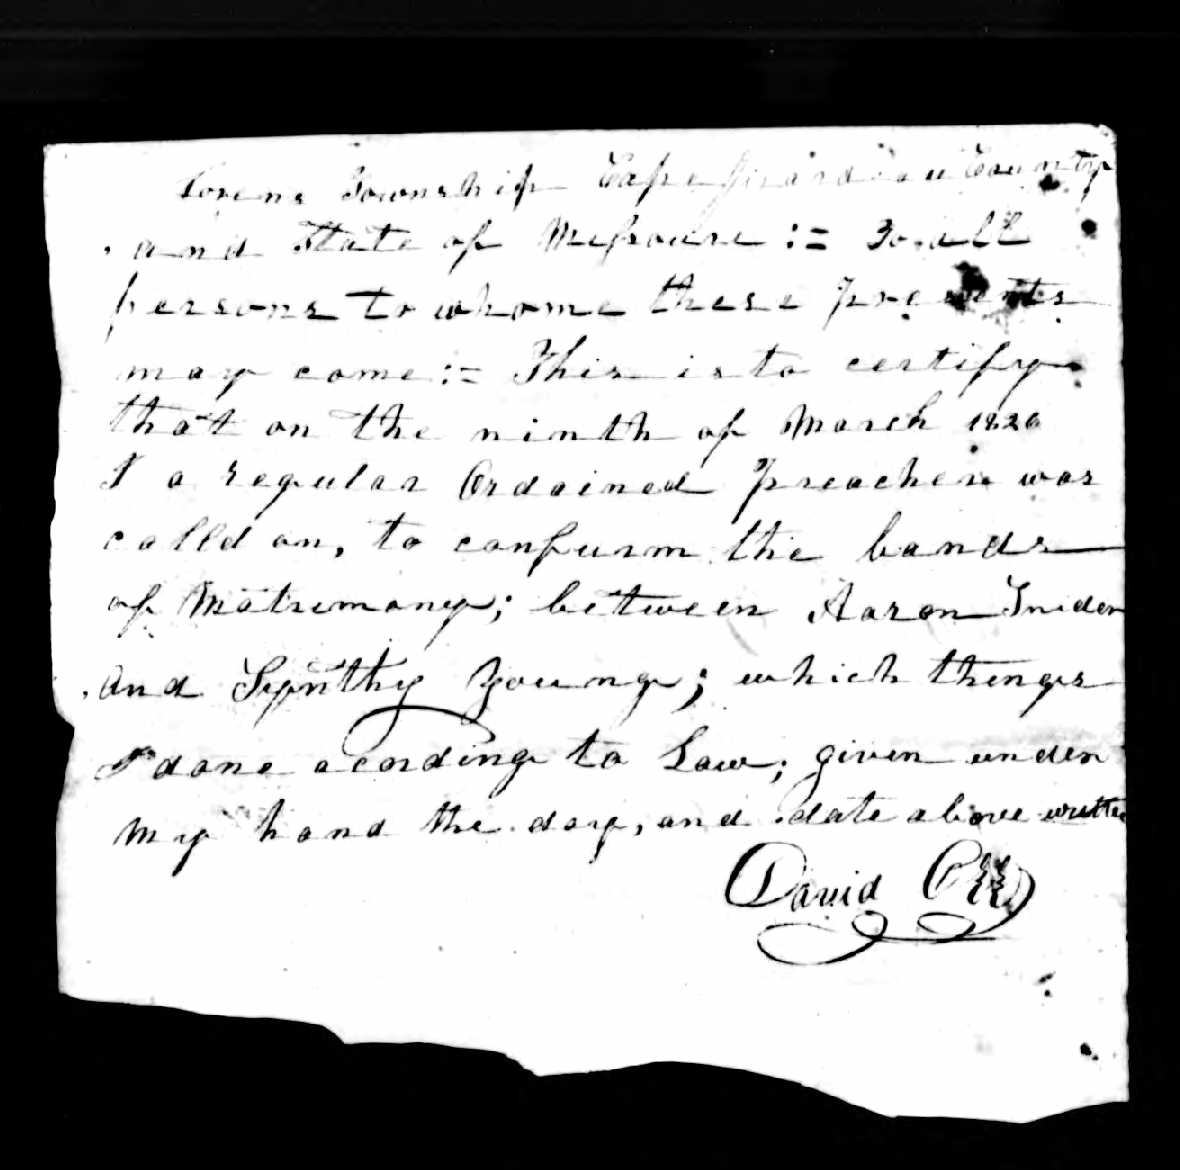 Lorens Township Cape Girardeau County
and State of Missouri := To all
persons to whome these presents
may come := This is to certify
that on the ninth of March 1826
I a regular Ordained Preacher was
calld on, to confurm the bands
of Matrimony; between Aaron Snider
and Synthy Young; which things
I done acording to Law; given under
my hand the day, and date above written
David Orr